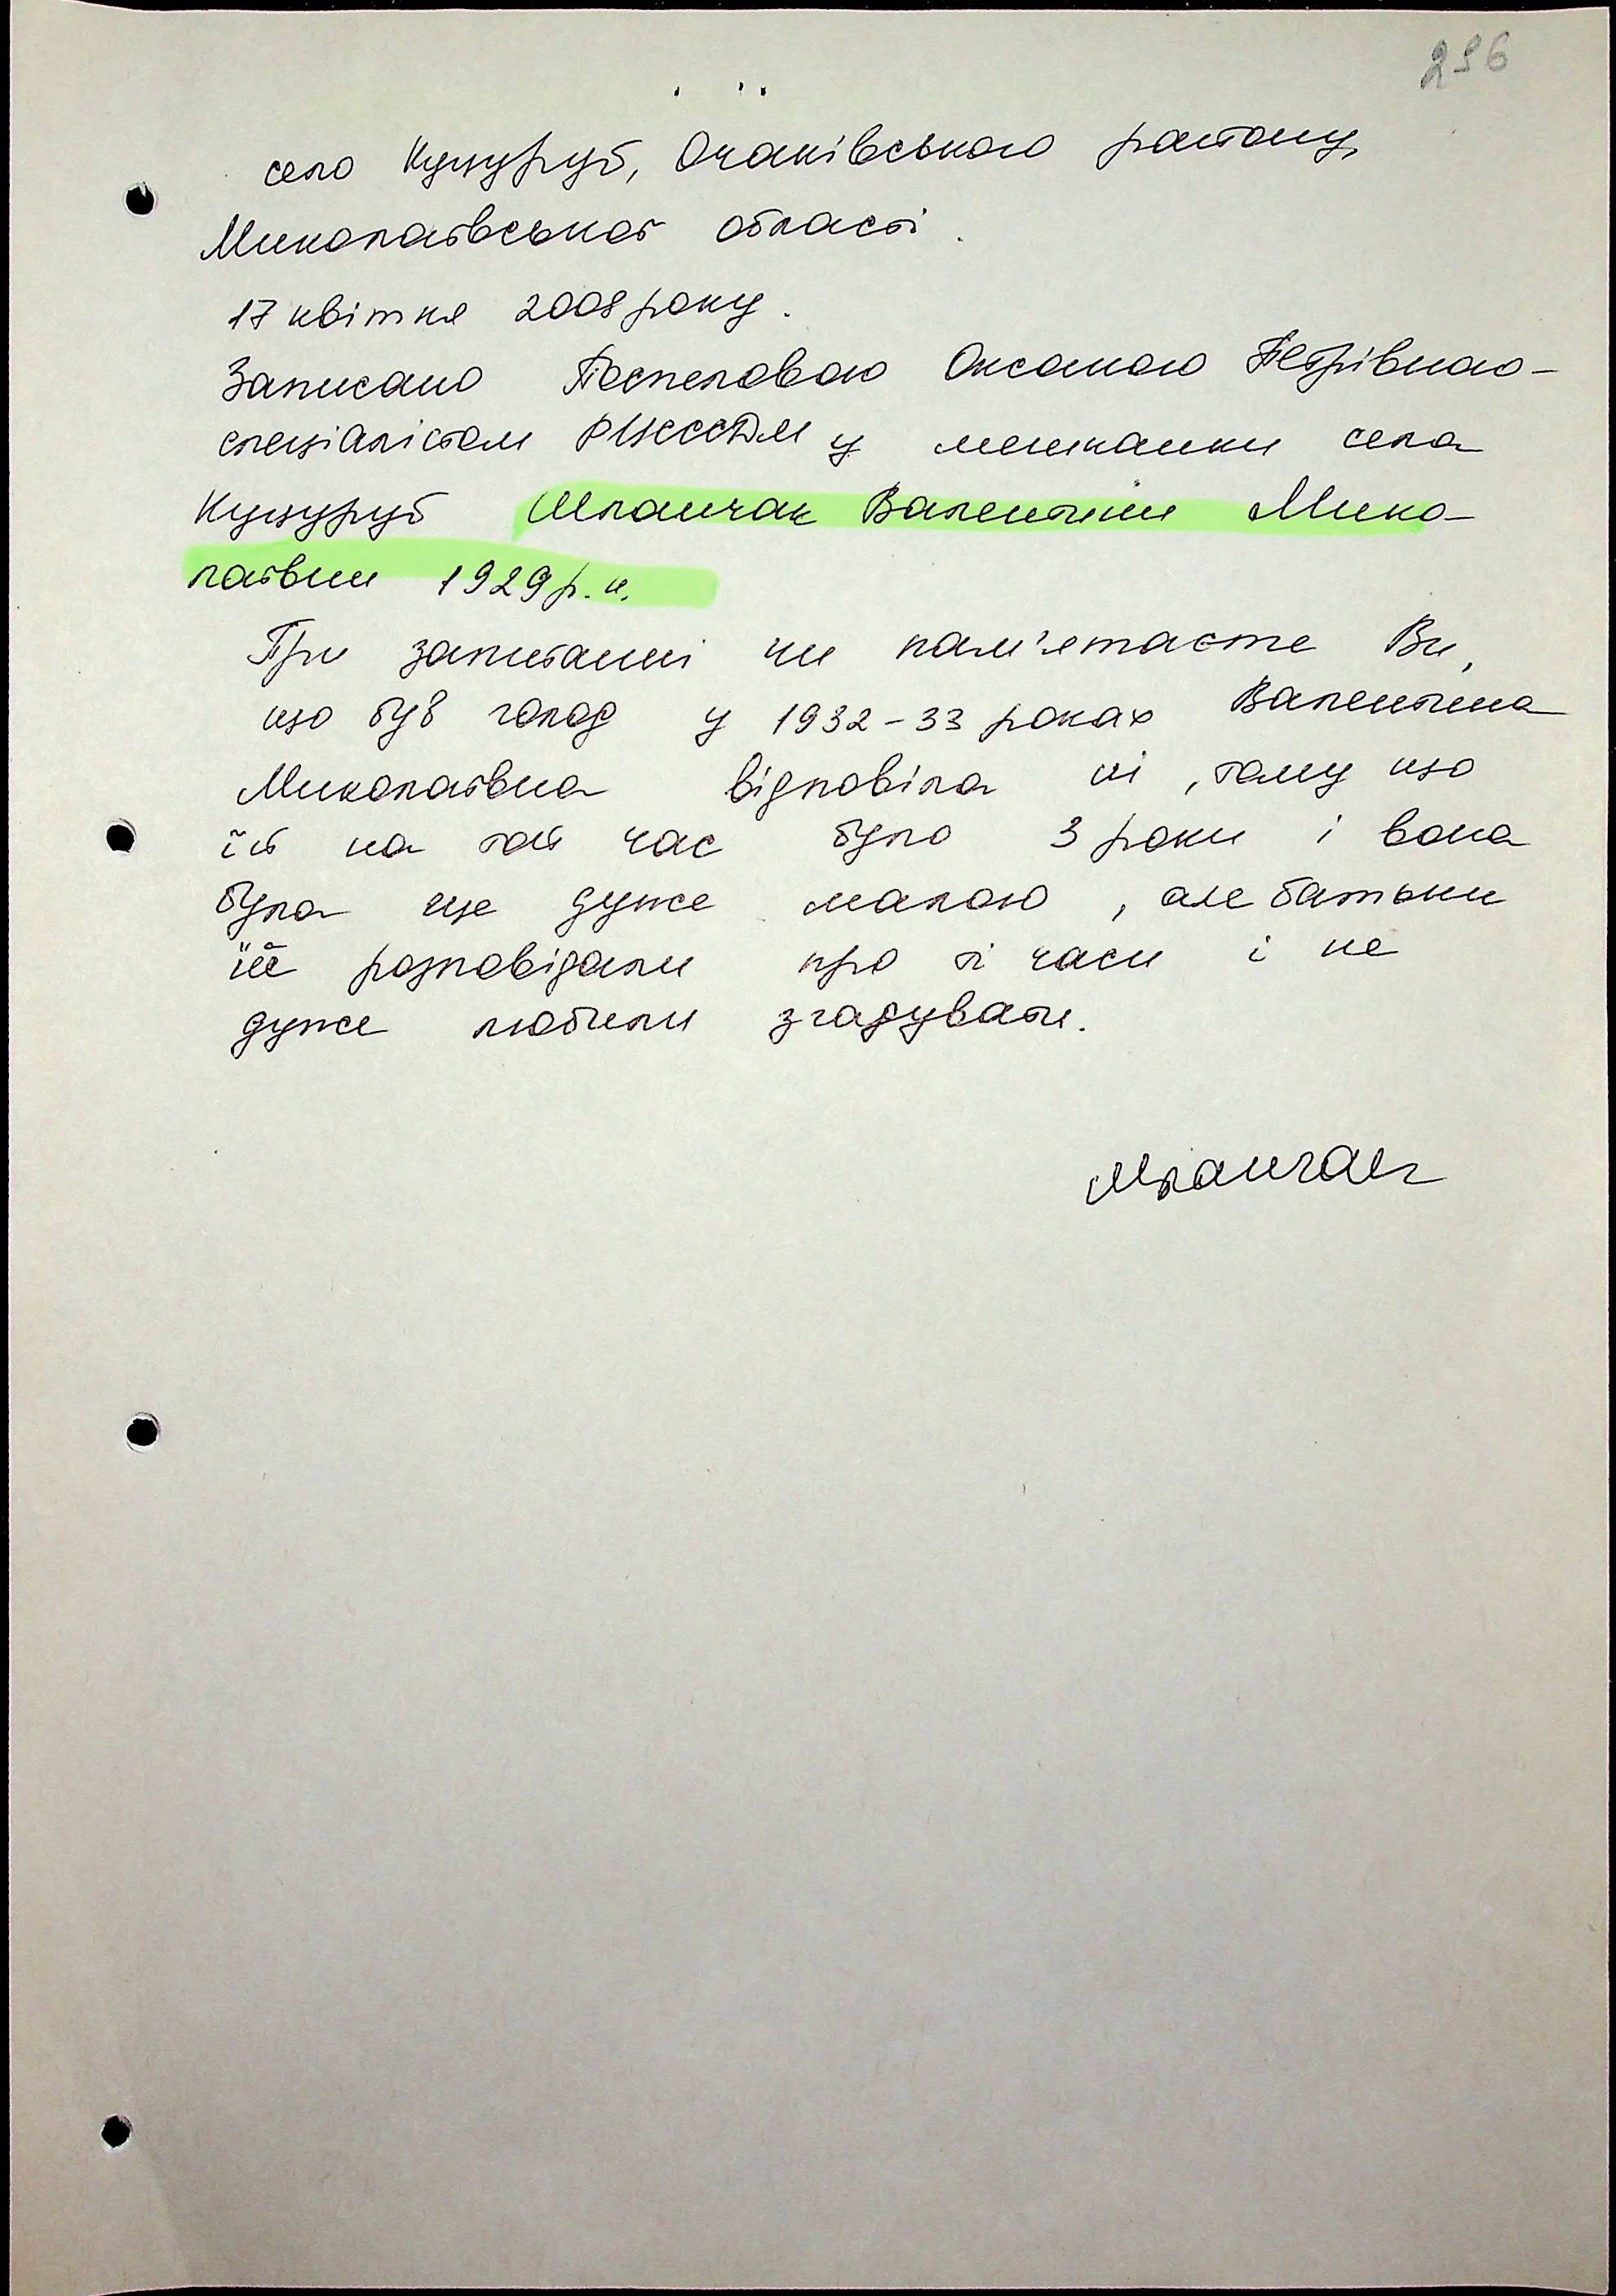 296
село Куцуруб, Очаківського району,
Миколаївської області.
17 квітня 2008 року.
Записано Поспеловою Оксаною Петрівною -
спеціалістом РЦСССДМ у мешканки села
Куцуруб Мланчак Валентини Мико-
лаївни 1929 р.н.
При запитанні чи пам'ятаєте Ви,
що був голод у 1932-33 роках Валентина
Миколаївна відповіла ні, тому що
їй на той час було 3 роки і вона
була ще дуже малою, але батьки
їй розповідали про ті часи і не
дуже любили згадувати.
Мланчак